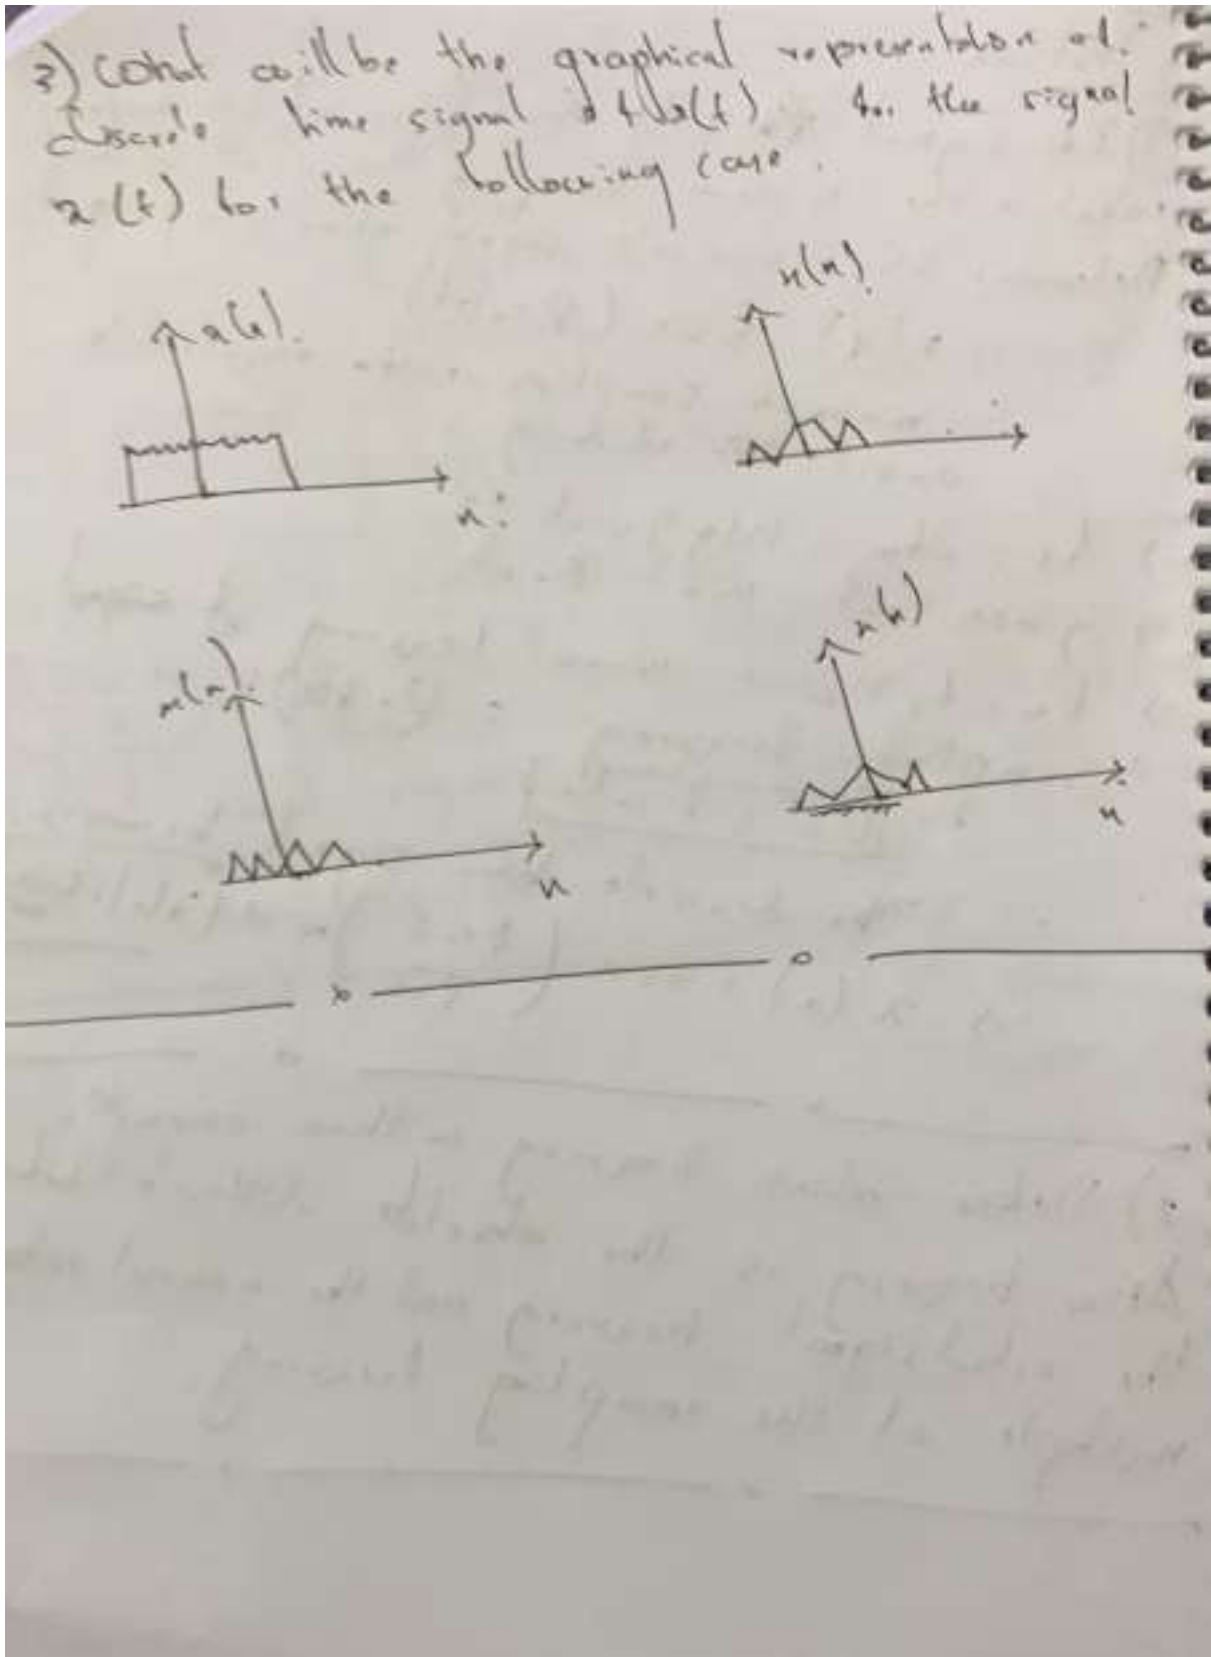 3) what will be the graphical representation of
discrete time signal x(t) for the signal
x(t) for the following case.
x(n).
x(n).
n
x(n).
x(n)
n
n